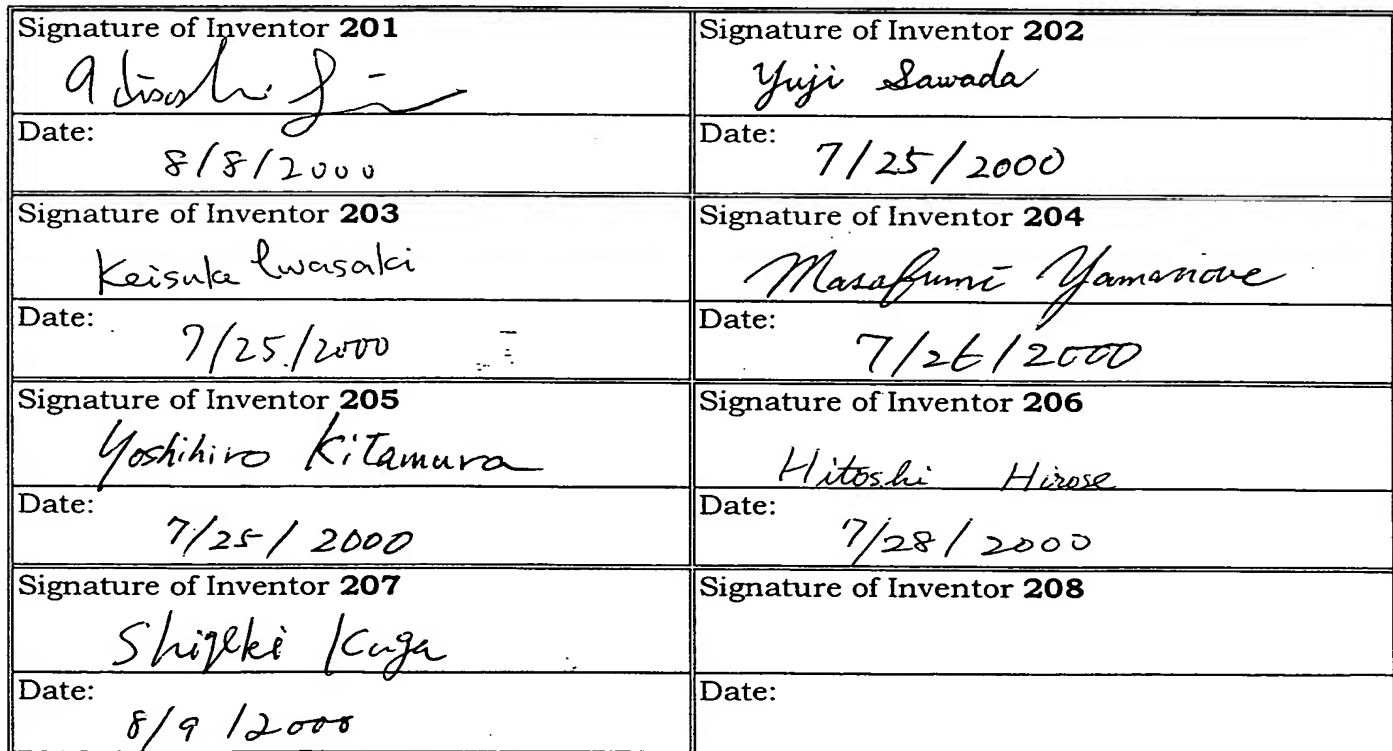 Signature of Inventor 201
Signature of Inventor 202
Yuji Sawada
Date:
8/8/2000
Date:
7/25/2000
Signature of Inventor 203
Keisuke Iwasaki
Signature of Inventor 204
Masafumi Yamanoue
Date:
7/25/2000
Date:
7/26/2000
Signature of Inventor 205
Yoshihiro Kitamura
Signature of Inventor 206
Hitoshi Hirose
Date:
7/25/2000
Date:
7/28/2000
Signature of Inventor 207
Shigeki Kuga
Signature of Inventor 208
Date:
8/9/2000
Date: